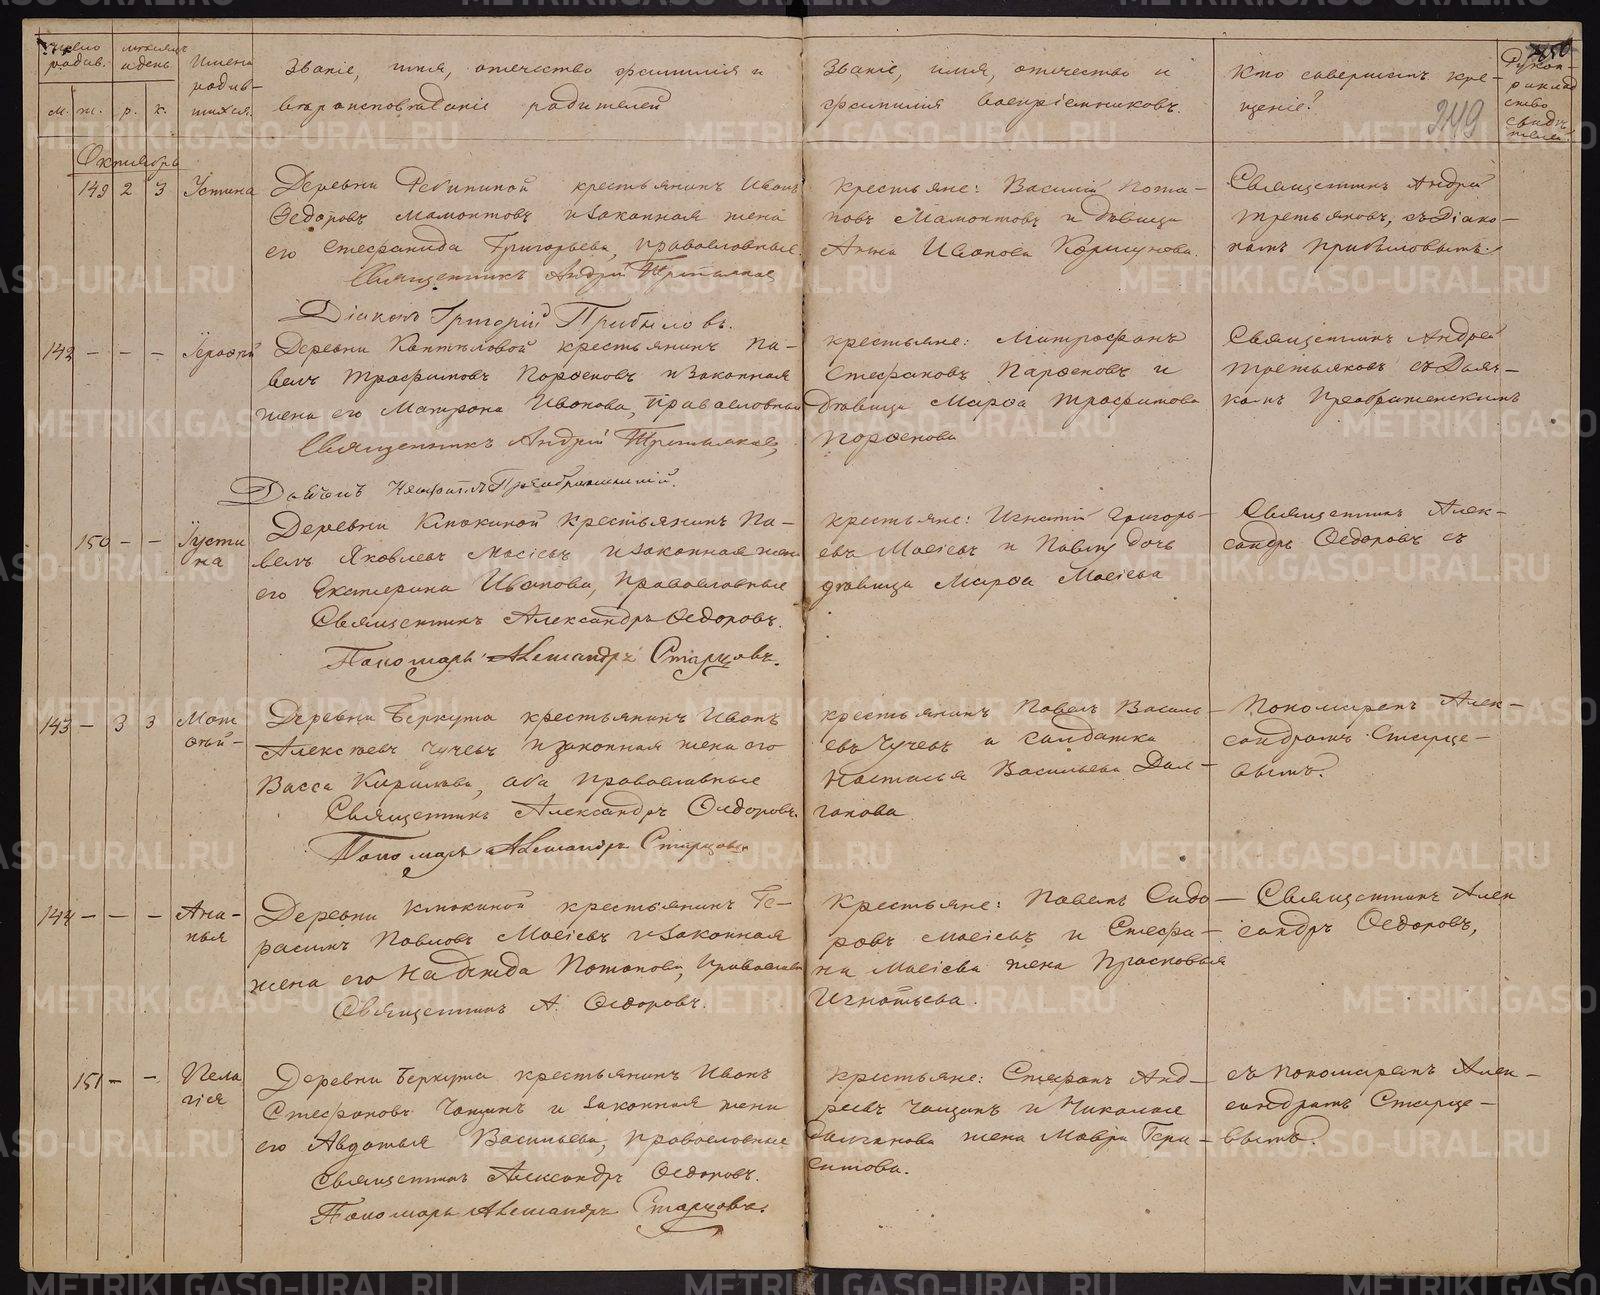 Число родив.
мѣсяцъ и день
Имена родив-
шихся.
м. ж. р. к.
Званіе, имя, отечество фамилія и
вѣроисповѣданіе родителей
Званіе, имя, отечество и
фамилія воспріемниковъ.
Кто совершалъ кре-
щеніе?
249
Рукоприкладство свидѣтелей
Октябрь
149 2 3 Устина
Деревни Ребининой крестьянинъ Иванъ
Ѳедоровъ Мамонтовъ и законная жена
его Стефанида Григорьева, православные
Священникъ Андрей Третьяковъ
Діаконъ Григорій Прибыловъ.
крестьяне: Василій Пота-
повъ Мамонтовъ и дѣвица
Анна Иванова Коршунова.
Священникъ Андрей
Третьяковъ, съ Діако-
номъ Прибыловымъ.
142 — — — Іероѳей
Деревни Каптѣловой крестьянинъ Па-
велъ Трофимовъ Парѳеновъ и законная
жена его Матрона Иванова, православные
Священникъ Андрей Третьяковъ,
Преображенскій.
крестьяне: Митрофанъ
Стефановъ Парѳеновъ и
дѣвица Марѳа Трофимова
Парѳенова
Священникъ Андрей
Третьяковъ съ Дьяч-
комъ Преображенскимъ
150 — — Іусти
на
Деревни Клюкиной крестьянинъ Па-
велъ Яковлевъ Моѵсіевъ и законная жена
его Екатерина Иванова, православные
Священникъ Александръ Ѳедоровъ.
Пономарь Александръ Старцовъ.
крестьяне: Игнатій Григорь-
евъ Моисіевъ и Павла дочь
дѣвица Марѳа Моисіева
Священникъ Алек-
сандръ Ѳедоровъ съ
143 — 3 3 Мат
ѳей —
Деревни Беркута крестьянинъ Иванъ
Алексѣевъ Чучевъ и законная жена его
Васса Кирилова, оба православные
Священникъ Александръ Ѳедоровъ.
Пономарь Александръ Старцовъ
крестьянинъ Павелъ Василь-
евъ Чучевъ и солдатка
Настасья Васильева Дол-
ганова
Пономаремъ Алек-
сандромъ Старце-
вымъ.
144 — — — Ана-
нья
Деревни Клюкиной крестьянинъ Ге-
расимъ Павловъ Моисіевъ и законная
жена его Надежда Потапова, православн
Священникъ А. Ѳедоровъ.
Крестьяне: Павелъ Сидо-
ровъ Моисіевъ и Стефа-
на Моисіева жена Прасковья
Игнатьева.
Священникъ Алек
сандръ Ѳедоровъ,
151 — — Пела
гія
Деревни Беркута крестьянинъ Иванъ
Стефановъ Чащинъ и законная жена
его Авдотья Васильева, православные
Священникъ Александръ Ѳедоровъ.
Пономарь Александръ Старцовъ.
крестьяне: Стефанъ Анд-
реевъ Чащинъ и Николая
Долганова жена Мавра Гера-
симова.
съ пономаремъ Алек-
сандромъ Старце-
вымъ.
METRIKI.GASO-URAL.RU